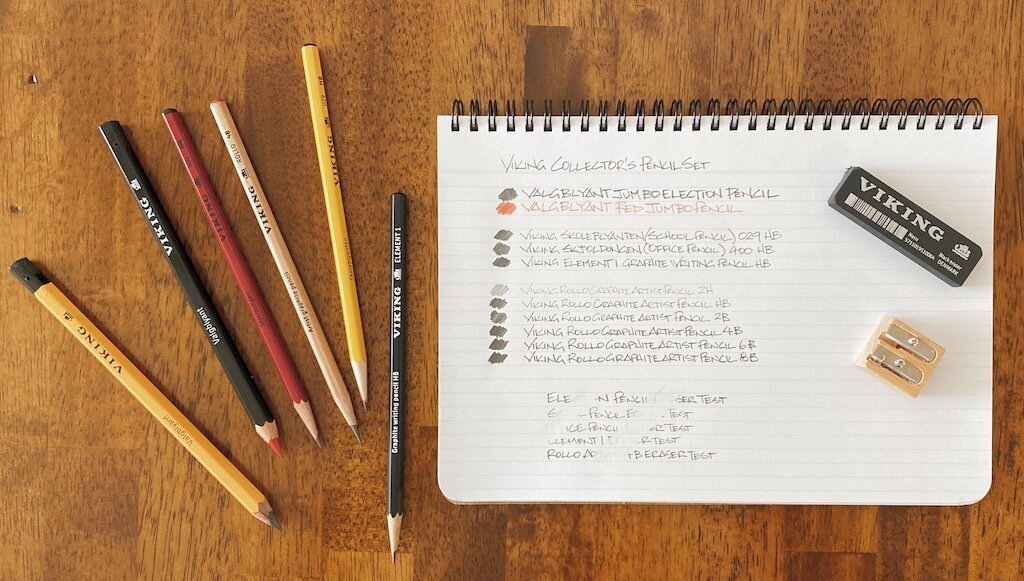 VIKING
Valgblyant
VIKING
Valgblyant
VIKING
4B ROLLO VIKING
Artist graphite pencil
HB ROLLO VIKING
VIKING ELEMENT 1
Graphite writing pencil HB
VIKING COLLECTOR'S PENCIL SET
VALGBLYANT JUMBO ELECTION PENCIL
VALGBLYANT RED JUMBO PENCIL
VIKING SKOLEBLYANTEN (SCHOOL PENCIL) 029 HB
VIKING SKJOLDUNGEN (OFFICE PENCIL) 400 HB
VIKING ELEMENT 1 GRAPHITE WRITING PENCIL HB
VIKING ROLLO GRAPHITE ARTIST PENCIL 2H
VIKING ROLLO GRAPHITE ARTIST PENCIL HB
VIKING ROLLO GRAPHITE ARTIST PENCIL 2B
VIKING ROLLO GRAPHITE ARTIST PENCIL 4B
VIKING ROLLO GRAPHITE ARTIST PENCIL 6B
VIKING ROLLO GRAPHITE ARTIST PENCIL 8B
PENCIL TEST
PENCIL TEST
PENCIL TEST
ELEMENT 1 TEST
ROLLO ERASER TEST
VIKING
Black eraser
DENMARK